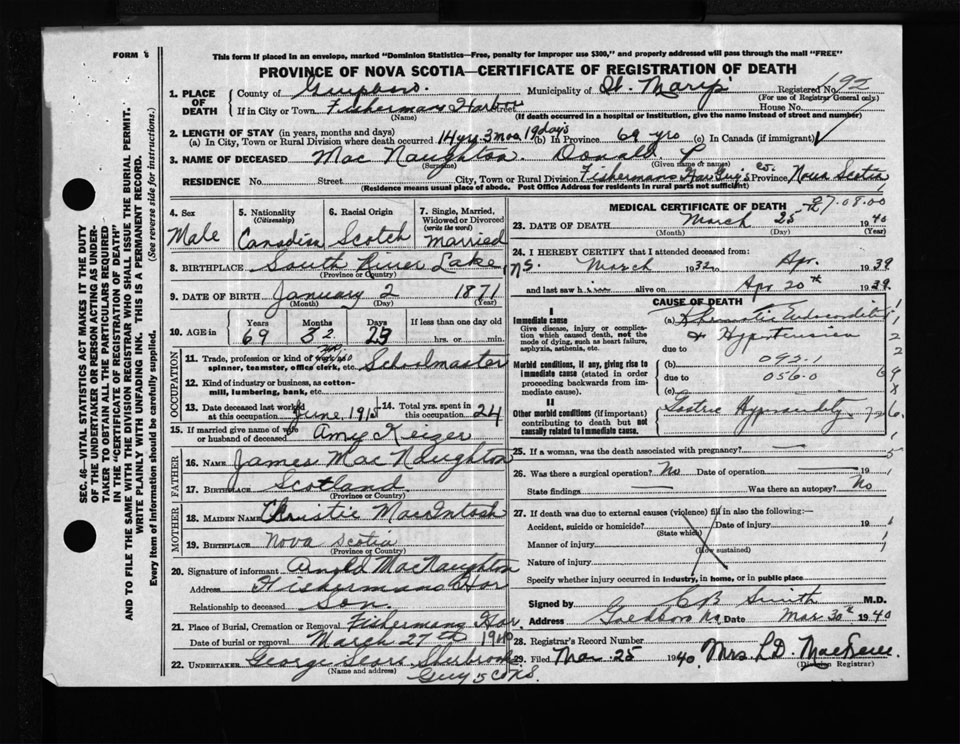 FORM
This form if placed in an envelope, marked "Dominion Statistics—Free, penalty for improper use $300," and properly addressed will pass through the mail "FREE"
PROVINCE OF NOVA SCOTIA—CERTIFICATE OF REGISTRATION OF DEATH
SEC. 46—VITAL STATISTICS ACT MAKES IT THE DUTY
OF THE UNDERTAKER OR PERSON ACTING AS UNDER-
TAKER TO OBTAIN ALL THE PARTICULARS REQUIRED
IN THE "CERTIFICATE OF REGISTRATION OF DEATH"
AND TO FILE THE SAME WITH THE DIVISION REGISTRAR WHO SHALL ISSUE THE BURIAL PERMIT.
WRITE PLAINLY WITH UNFADING INK. THIS IS A PERMANENT RECORD.
Every item of information should be carefully supplied. (See reverse side for instructions.)
1. PLACE OF DEATH County of Guysboro. Municipality of St. Marys Registered No. 92
(For use of Registrar General only.)
If in City or Town Fishermans Harbor Street House No.
(Name) (If death occurred in a hospital or institution, give the name instead of street and number)
2. LENGTH OF STAY (in years, months and days)
(a) In City, Town or Rural Division where death occurred 14 yrs. 3 mos. 19 days (b) In Province 69 yrs (c) In Canada (if immigrant)
3. NAME OF DECEASED Mac Naughton. Donald
(Surname) (Given name or names)
RESIDENCE No. Street City, Town or Rural Division Fishermans Har Guy's Co. Province Nova Scotia
(Residence means usual place of abode. Post Office Address for residents in rural parts not sufficient)
4. Sex Male
5. Nationality (Citizenship) Canadian
6. Racial Origin Scotch
7. Single, Married, Widowed or Divorced (write the word) Married
8. BIRTHPLACE South River Lake N.S.
(Province or Country)
9. DATE OF BIRTH January 2 1871
(Month) (Day) (Year)
10. AGE in Years 69 Months 2 Days 23 If less than one day
hrs. or min.
OCCUPATION
11. Trade, profession or kind of work as spinner, teamster, office clerk, etc. Schoolmaster
12. Kind of industry or business, as cotton-mill, lumbering, bank, etc.
13. Date deceased last worked at this occupation June 1915
14. Total yrs. spent in this occupation 24
15. If married give name of wife or husband of deceased Amy Keizer
FATHER
16. NAME James Mac Naughton
17. Birthplace Scotland
(Province or Country)
MOTHER
18. MAIDEN NAME Christie MacIntosh
19. BIRTHPLACE Nova Scotia
(Province or Country)
20. Signature of informant Arnold MacNaughton
Address Fishermans Har
Relationship to deceased Son.
21. Place of Burial, Cremation or Removal Fishermans Har.
Date of burial or removal March 27th 1940
22. UNDERTAKER George Sherbrooke
(Name and address)
Guy's Co N.S.
MEDICAL CERTIFICATE OF DEATH 27.08.00
23. DATE OF DEATH March 25 1940
(Month) (Day) (Year)
24. I HEREBY CERTIFY that I attended deceased from:
March 1932 to Apr. 1939
and last saw him alive on Apr 20th 1939.
CAUSE OF DEATH
I
Immediate cause
Give disease, injury or complication which caused death, not the mode of dying, such as heart failure, asphyxia, asthenia, etc.
(a) Rheumatic Endocarditis
& Hypertension
due to
Morbid conditions, if any, giving rise to immediate cause (stated in order proceeding backwards from immediate cause).
(b) 093.1
due to 056.0
(c)
II
Other morbid conditions (if important) contributing to death but not causally related to immediate cause.
Gastric
25. If a woman, was the death associated with pregnancy?
26. Was there a surgical operation? No Date of operation 19
State findings Was there an autopsy? No
27. If death was due to external causes (violence) fill in also the following:—
Accident, suicide or homicide? Date of injury 19
(State which)
Manner of injury
(How sustained)
Nature of injury
Specify whether injury occurred in industry, in home, or in public place
Signed by C B Smith M.D.
Address Goldboro N.S. Date Mar 30th 1940
28. Registrar's Record Number
29. Filed Mar. 25 1940 Mrs. L.D.
(Division Registrar)